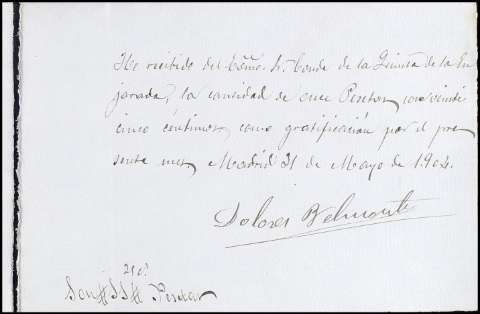 He recibido del Excmo. Sr. Conde de la Quinta de la En
jarada, la cantidad de once Pesetas con veinti
cinco céntimos, como gratificación por el pre
sente mes, Madrid 31 de Mayo de 1904.
Dolores Belmonte
Son # Pesetas